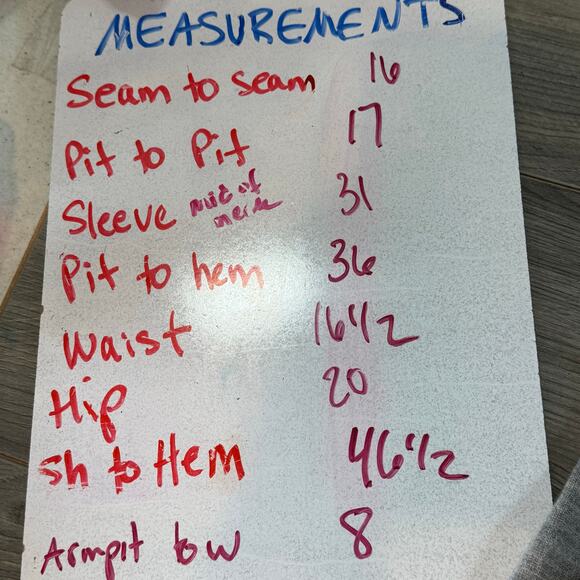 MEASUREMENTS
Seam to seam 16
Pit to Pit 17
Sleeve mid of neck 31
Pit to hem 36
Waist 16 1/2
Hip 20
Sh to Hem 46 1/2
Armpit to W 8